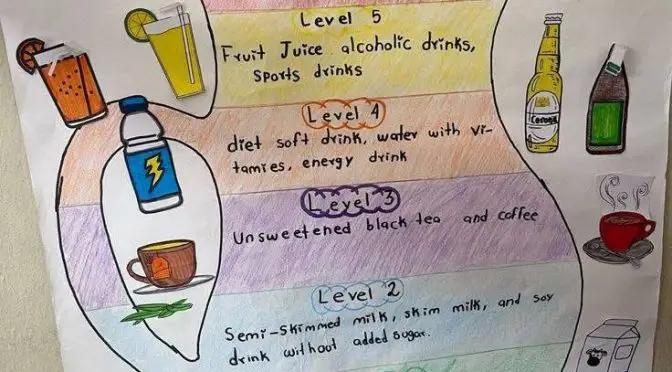 Level 5
Fruit Juice alcoholic drinks,
sports drinks
Level 4
diet soft drink, water with vi-
tamies, energy drink
Level 3
Unsweetened black tea and coffee
Level 2
Semi-skimmed milk, skim milk, and soy
drink without added sugar.
Corona